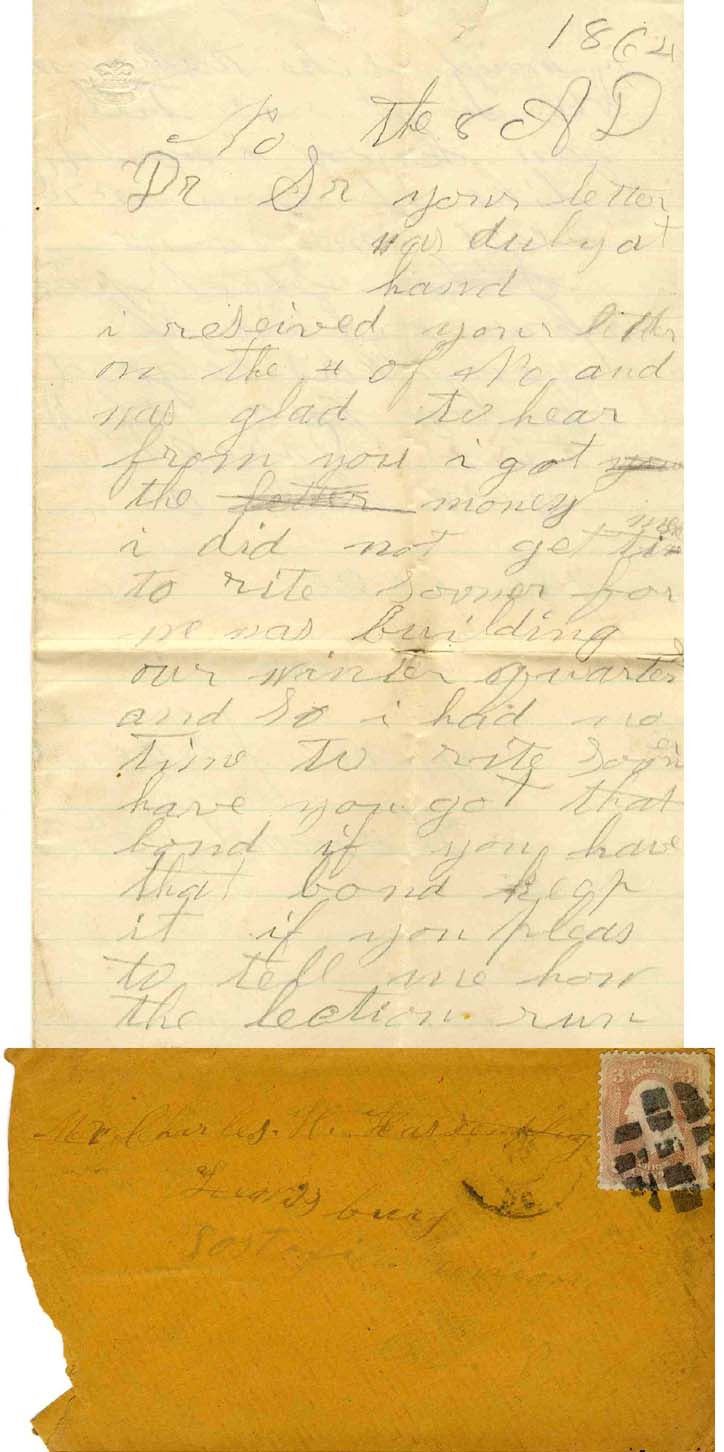 1864
No the 8 AD
Dr Sr your letter
was duby at
hand
i reseived your letter
on the 4 of No and
was glad to hear
from you i got you
the letter money
i did not get time
to rite sooner for
we was building
our winter quarters
and so i had no
time to rite sooner
have you got that
bond if you have
that bond keap
it if you pleas
to tell me how
the lection run
U.S.
3 3
Mr Charles. H.
Lewisburg